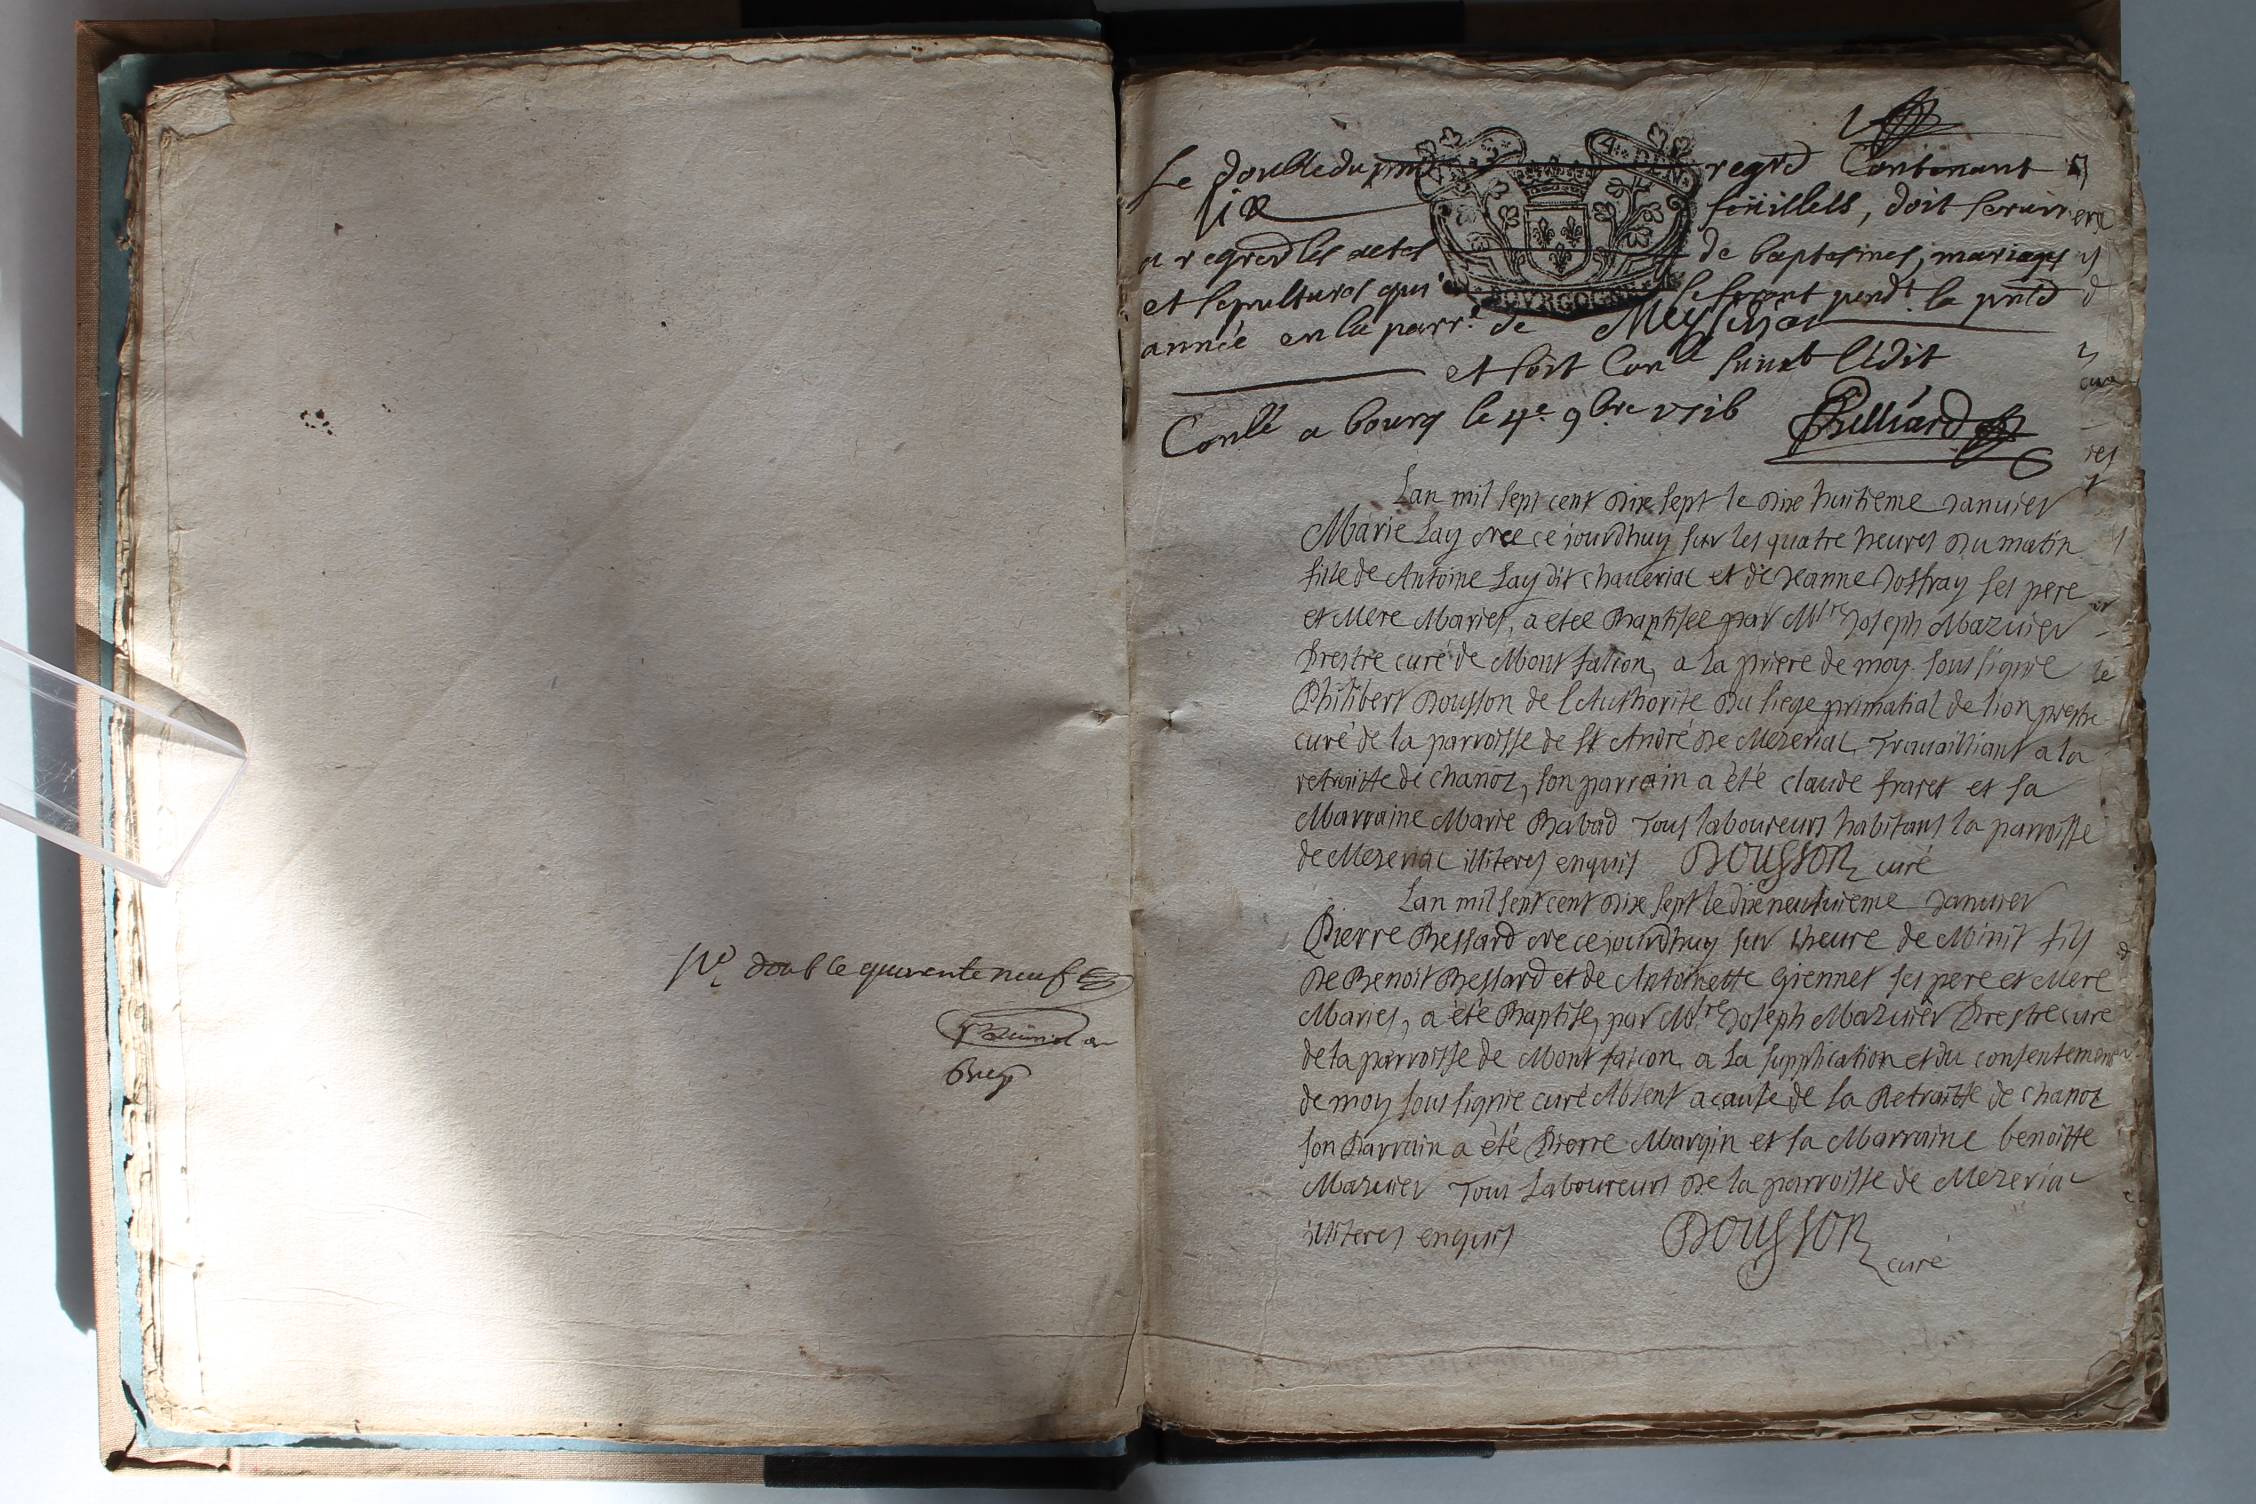 No double quarente neuf
Le double du pnt regrd Contenant
six feüillets, doit servir
a regrer les actes de baptesmes, mariages
et sepultures qui se feront pendt la pnte
année en la parr.e de
et soit Con.lé suiut lédit
Con.lé a bourg le 4e 9bre 1716
BOURGOGNE
4 DEN
Lan mil sept cent dixe sept le dixe huitieme Janvier
Marie Lay née ce jourdhuy sur les quatre heures du matin
fille de Antoine Lay dit chaveriac et de Jeanne Joffray ses pere
et Mere Mariés, a etée Baptisée par Mtre Joseph Mazuier
Prestre curé de Mont falcon, a la priere de moy sous signié
Philibert Dousson de lAuthorité du siege primatial de lion prestre
curé de la parroisse de St André De Mezeriac Travailliant a la
retraitte de chanoz, son parrain a èté claude fraret et sa
Marraine Marie Rabad Tous laboureurs habitans la parroisse
de Mezeriac illiterés enquis DOUSSON curé
Lan mil sept cent dixe sept le dixe neufvieme Janvier
Pierre Bessard né ce jourdhuy sur lheure de Minit fils
De Benoit Bessard et de Antoinette Giennet ses pere et Mere
Mariés, a èté Baptisé, par Mtre Joseph Mazuier Prestre curé
de la parroisse de Mont falcon a La supplication et du consentement
de moy sous signié curé Absent a cause de la Retraitte de chanoz
son Parrain a èté Pierre Margin et sa Marraine benoitte
Mazuier Tous Laboureurs De la parroisse de Mezeriac
illiterés enquis DOUSSON
curé